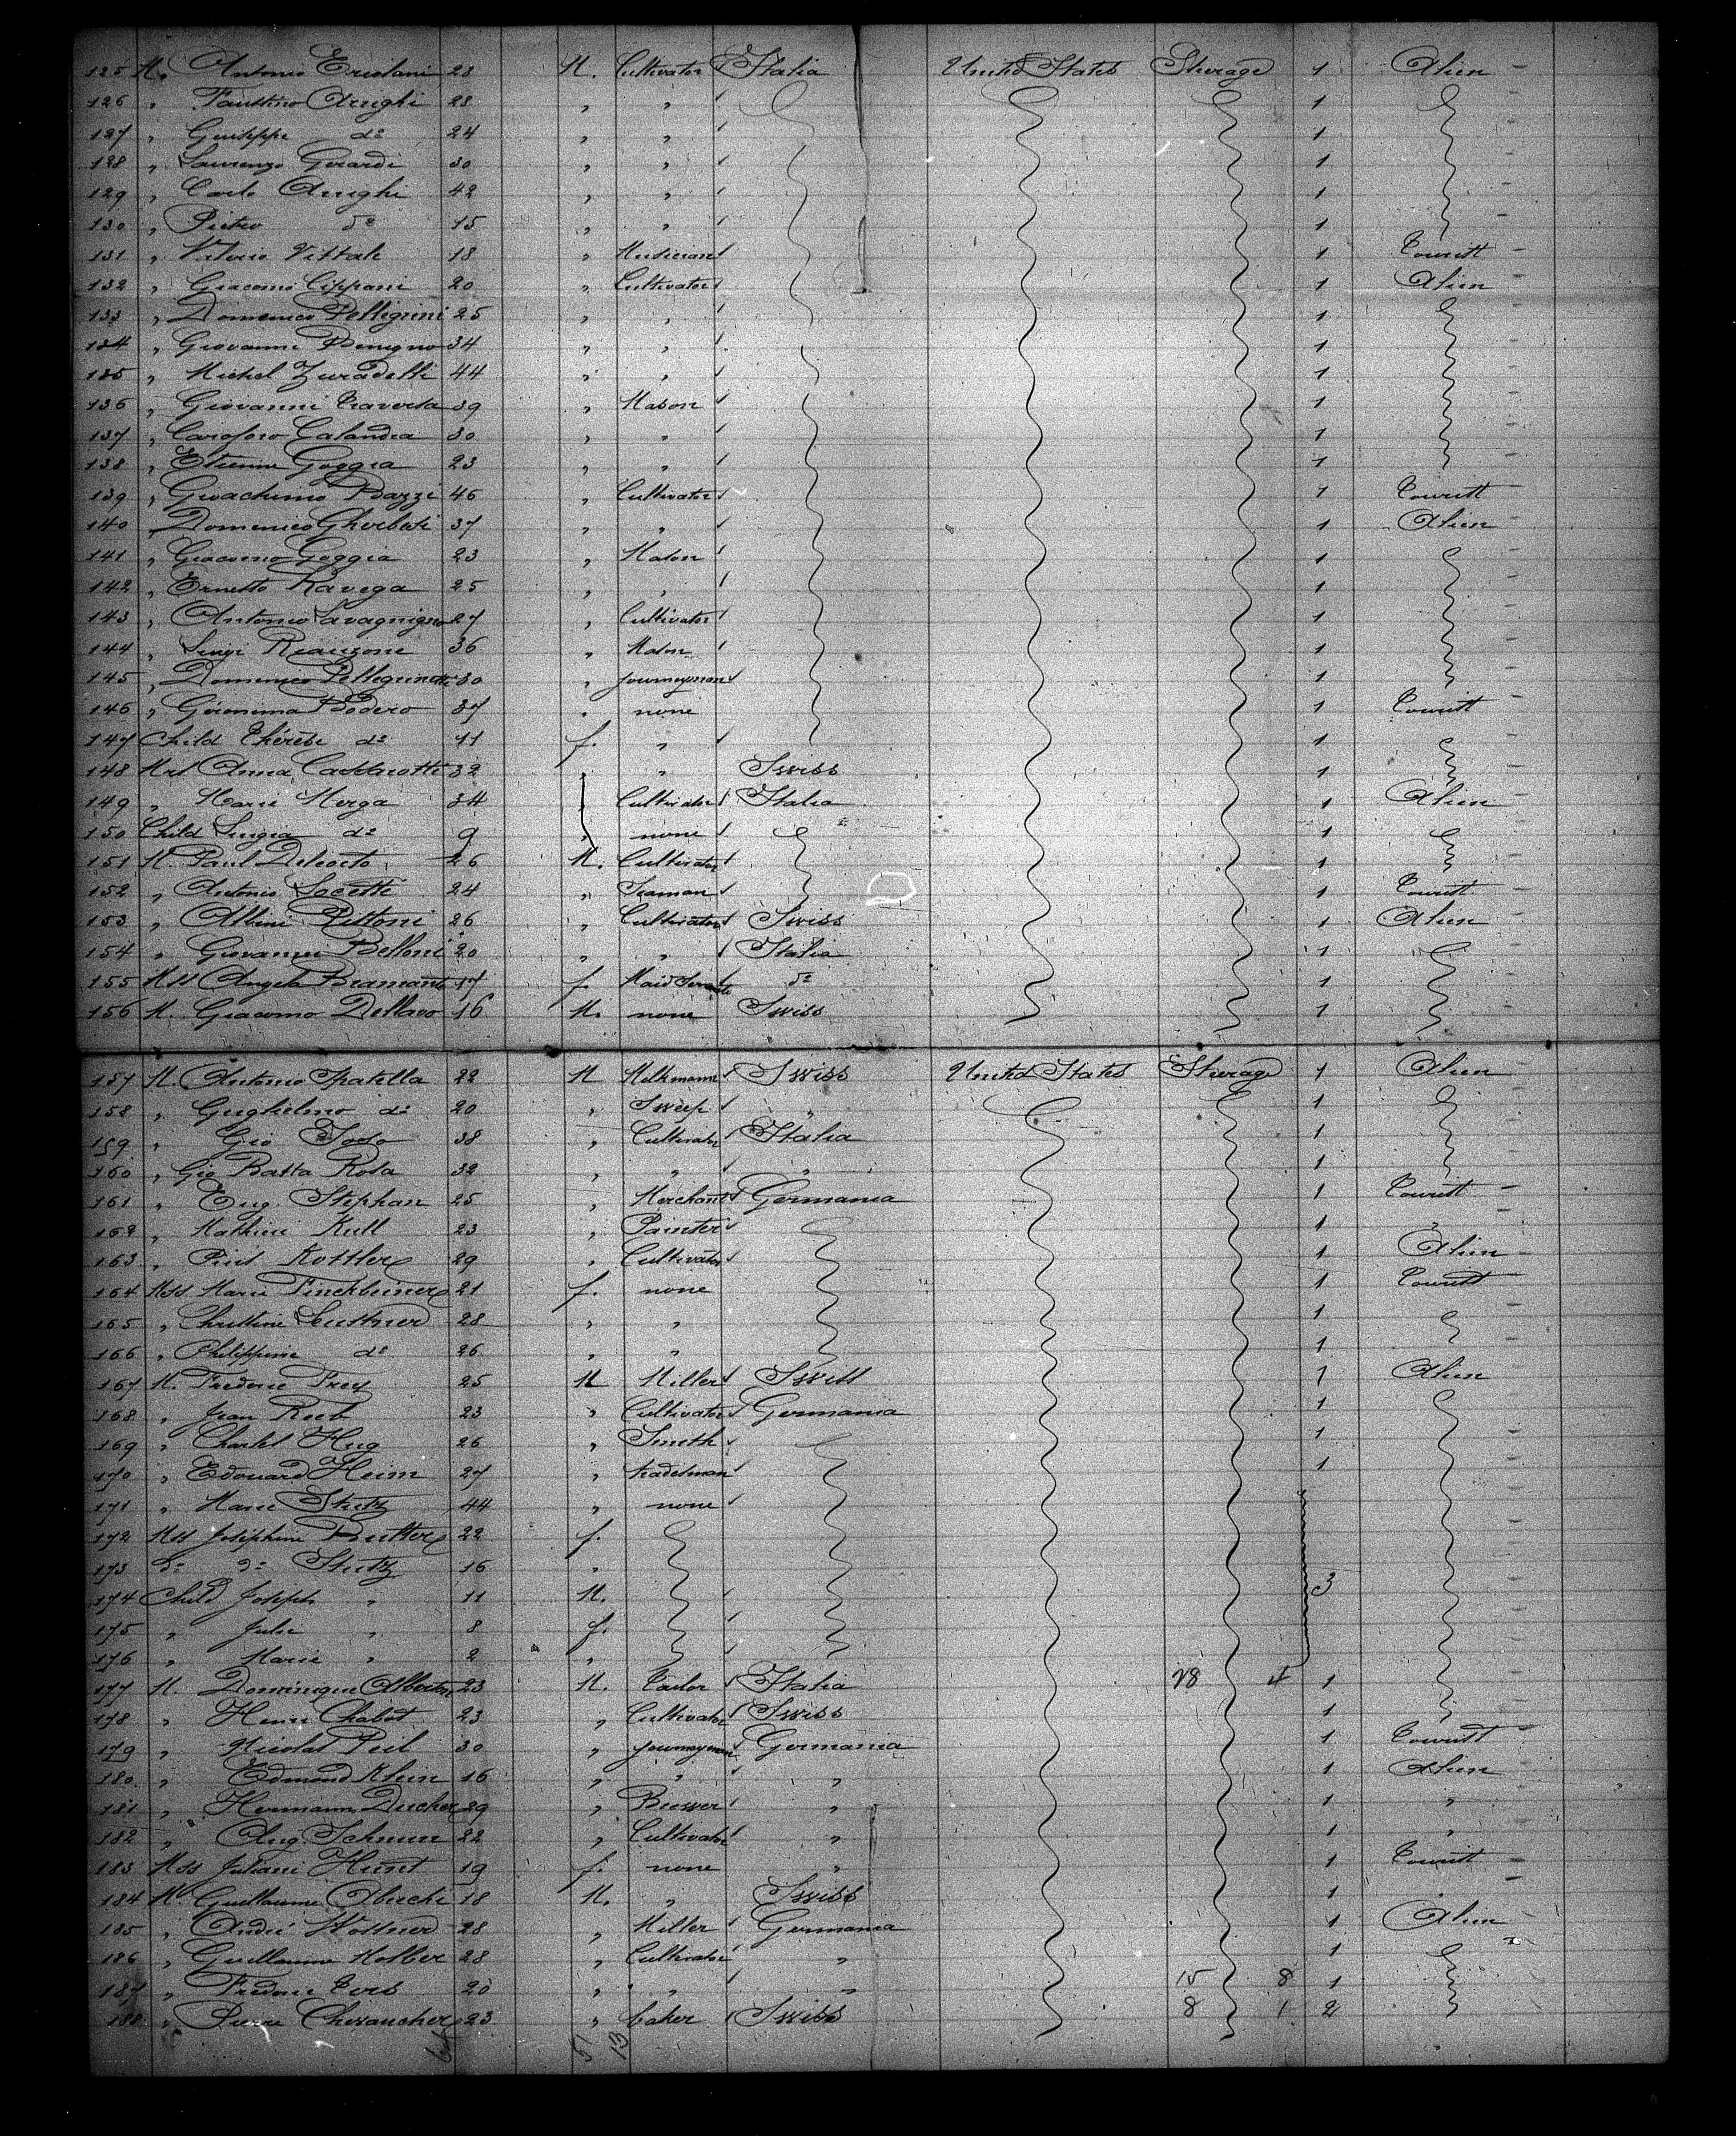 125 M. Antonio Ercolani 28 M. Cultivator Italia United States Sterage 1 Alien -
126 " Faustino Arrighi 28 " " 1
127 " Giuseppe do 24 " " 1
128 " Laurenzo Gerardi 30 " " 1
129 " Carlo Arrighi 42 " " 1
130 " Pietro do 15 " " 1
131 " Vittorio Vittale 18 " Musician 1 Tourist -
132 " Giacomo Cippani 20 " Cultivator 1 Alien -
133 " Domenico Pelligrini 25 " " 1
134 " Giovanni Benigno 34 " " 1
135 " Michel Zuradelli 44 " " 1
136 " Giovanni Traversa 39 " Mason 1
137 " Calandra 30 " " 1
138 " Etienne Goggia 23 " " 1
139 " Gioachimo Bazzi 45 " Cultivator 1 Tourist -
140 " Domenico 37 " " 1 Alien -
141 " Giacomo Goggia 23 " Mason 1
142 " Ernesto Ravega 25 " " 1
143 " Antonio Lavagnigno 27 " Cultivator 1
144 " Luigi 36 " Mason 1
145 " Domenico Pellegrinetti 30 " Journeyman 1
146 " Geronima Bodero 37 " none 1 Tourist -
147 Child Thérèse do 11 f. " 1
148 Mrs Anna 32 " " Swiss 1
149 " Marie Merga 34 " Cultivator Italia 1 Alien -
150 Child Luigia do 9 " none 1
151 M. Paul Delcorto 26 M. Cultivator 1
152 " Antonio Locetti 24 " Seaman 1 Tourist -
153 " Albini Pittoni 26 " Cultivator Swiss 1 Alien -
154 " Giovanni Belloni 20 " " Italia 1
155 Mss Angela Bramante 17 f. Maid Servante do 1
156 M. Giacomo Dellavo 16 M. none Swiss 1
157 M. Antonio Spatella 22 M Milkmann Swiss United States Sterage 1 Alien -
158 " Guglielmo do 20 " Sweep " 1
159 " Gio 38 " Cultivator Italia 1
160 " Gio Batta Rosa 32 " " " 1
161 " Eug. Stephan 25 " Merchant Germania 1 Tourist -
162 " Mathieu Kull 23 " Painter 1 "
163 " Kottler 29 " Cultivator 1 Alien -
164 Mss Marie Finckbeiner 21 f. none 1 Tourist -
165 " Christine Leuthner 28 " " 1
166 " Philippine do 26 " " 1
167 M. Frederic Frey 25 M Miller Swiss 1 Alien -
168 " Jean Reeb 23 " Cultivator Germania 1
169 " Charles Hug 26 " Smith 1
170 " Edouard Heim 27 " tradesman 1
171 " Marie Stutz 44 " none
172 Mss Josephine Butter 22 f.
173 do do Stutz 16 "
174 Child Joseph " 11 M. 3
175 " Julie " 8 f.
176 " Marie " 2 "
177 M. Dominique Alberton 23 M. Tailor Italia 28 4 1
178 " Henri Chabot 23 " Cultivator Swiss 1
179 " Nicolas Peel 30 " Journeyman Germania 1 Tourist -
180 " Edmond Klein 16 " " " 1 Alien -
181 " Hermann Ducher 29 " Brewer " 1 "
182 " Aug. 22 " Cultivator " 1 "
183 Mss Juliani Hunt 19 f. none " 1 Tourist -
184 M. Guillaume 18 M. " Swiss 1
185 " André 28 " Miller Germania 1 Alien -
186 " Guillaume 28 " Cultivator " 1
187 " Frederic 20 " " " 15 8 1
188 " Pierre 23 " baker Swiss 8 1 2
51 13